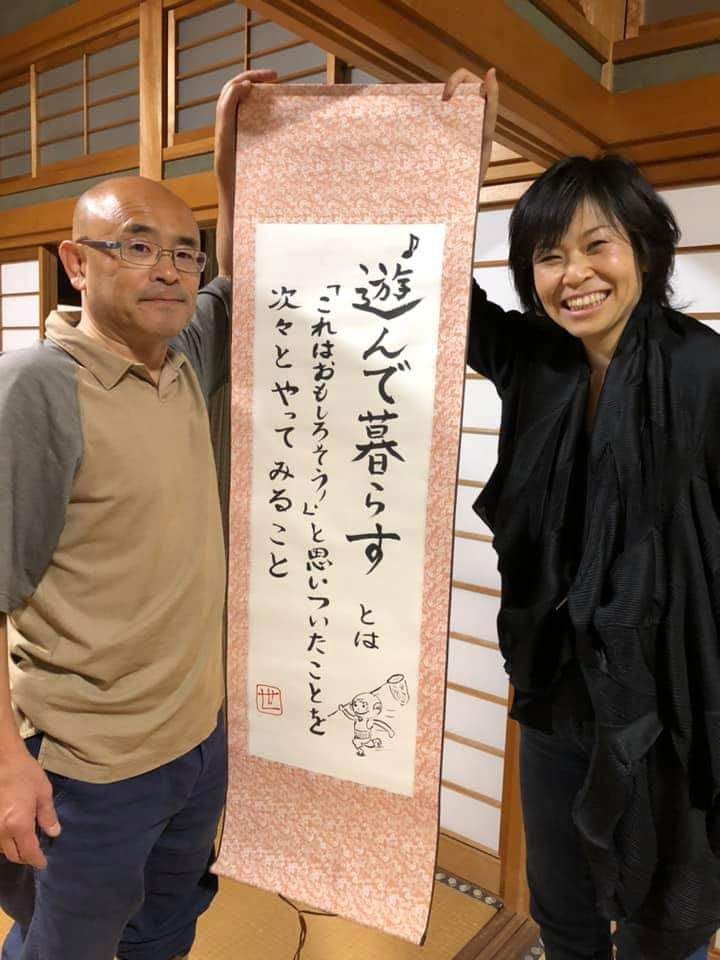 ♪遊んで暮らす とは
「これはおもしろそう！」と思いついたことを
次々とやってみること
世